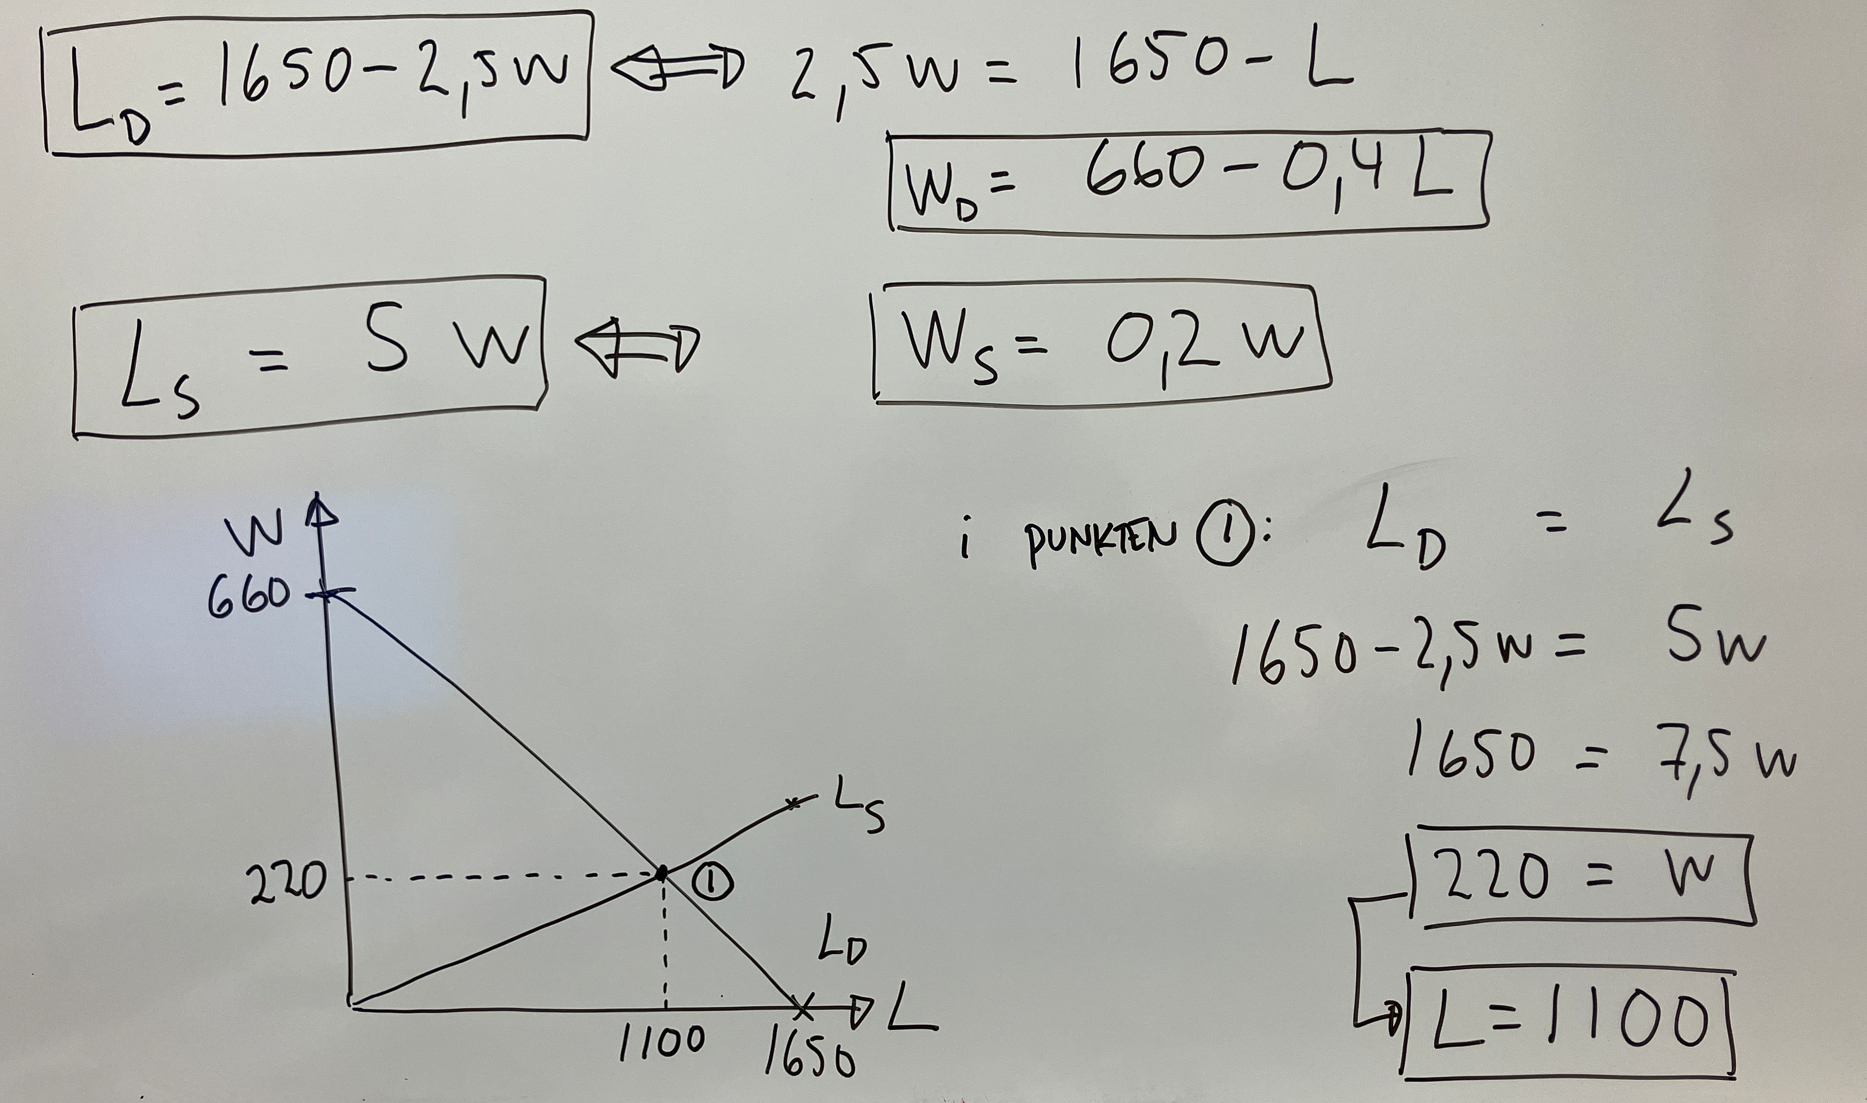 L_D = 1650 - 2,5w ⇔ 2,5w = 1650 - L
w_D = 660 - 0,4 L
L_S = 5 w ⇔ w_S = 0,2 w
w
660
220
1100
1650
L
L_S
①
L_D
i PUNKTEN ①: L_D = L_S
1650 - 2,5w = 5w
1650 = 7,5 w
220 = w
L = 1100